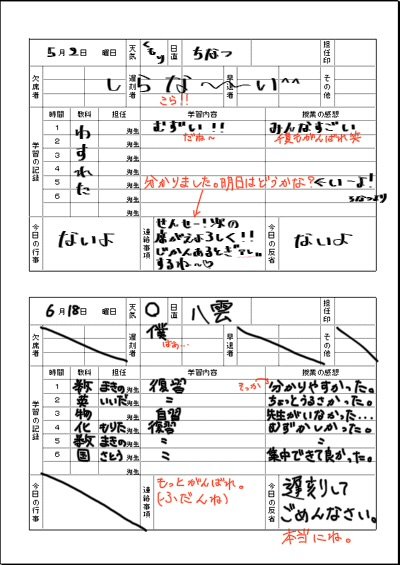 5月2日 曜日 天気 くもり 日直 ちなつ 担任印
欠席者 遅刻者 早退者 その他
しらな〜〜い^^
こら!!
時間 教科 担任 学習内容 授業の感想
学習の記録
1 先生 むずい!! みんなすごい
だね〜 千夏もがんばれ笑
2 先生
3 先生
4 先生
5 先生
6 先生
わすれた
分かりました。明日はどうかな? ≪いーよ!
ちなつより
今日の行事 ないよ
連絡事項
せんせー!次の
席がえよろしく!!
じかんあるとき
するね〜♡
今日の反省 ないよ
6月18日 曜日 天気 ○ 日直 八雲 担任印
欠席者 遅刻者 僕 早退者 その他
はぁ…
時間 教科 担任 学習内容 授業の感想
学習の記録
1 数 まきの先生 復習 そっか 分かりやすかった。
2 英 いいだ先生 〃 ちょっとうるさかった。
3 物 先生 自習 先生がいなかった…
4 化 もりた先生 復習 むずかしかった。
5 数 まきの先生 〃 〃
6 国 さとう先生 〃 集中できて良かった。
今日の行事
連絡事項
もっとがんばれ。
(ふだんね)
今日の反省
遅刻して
ごめんなさい。
本当にね。